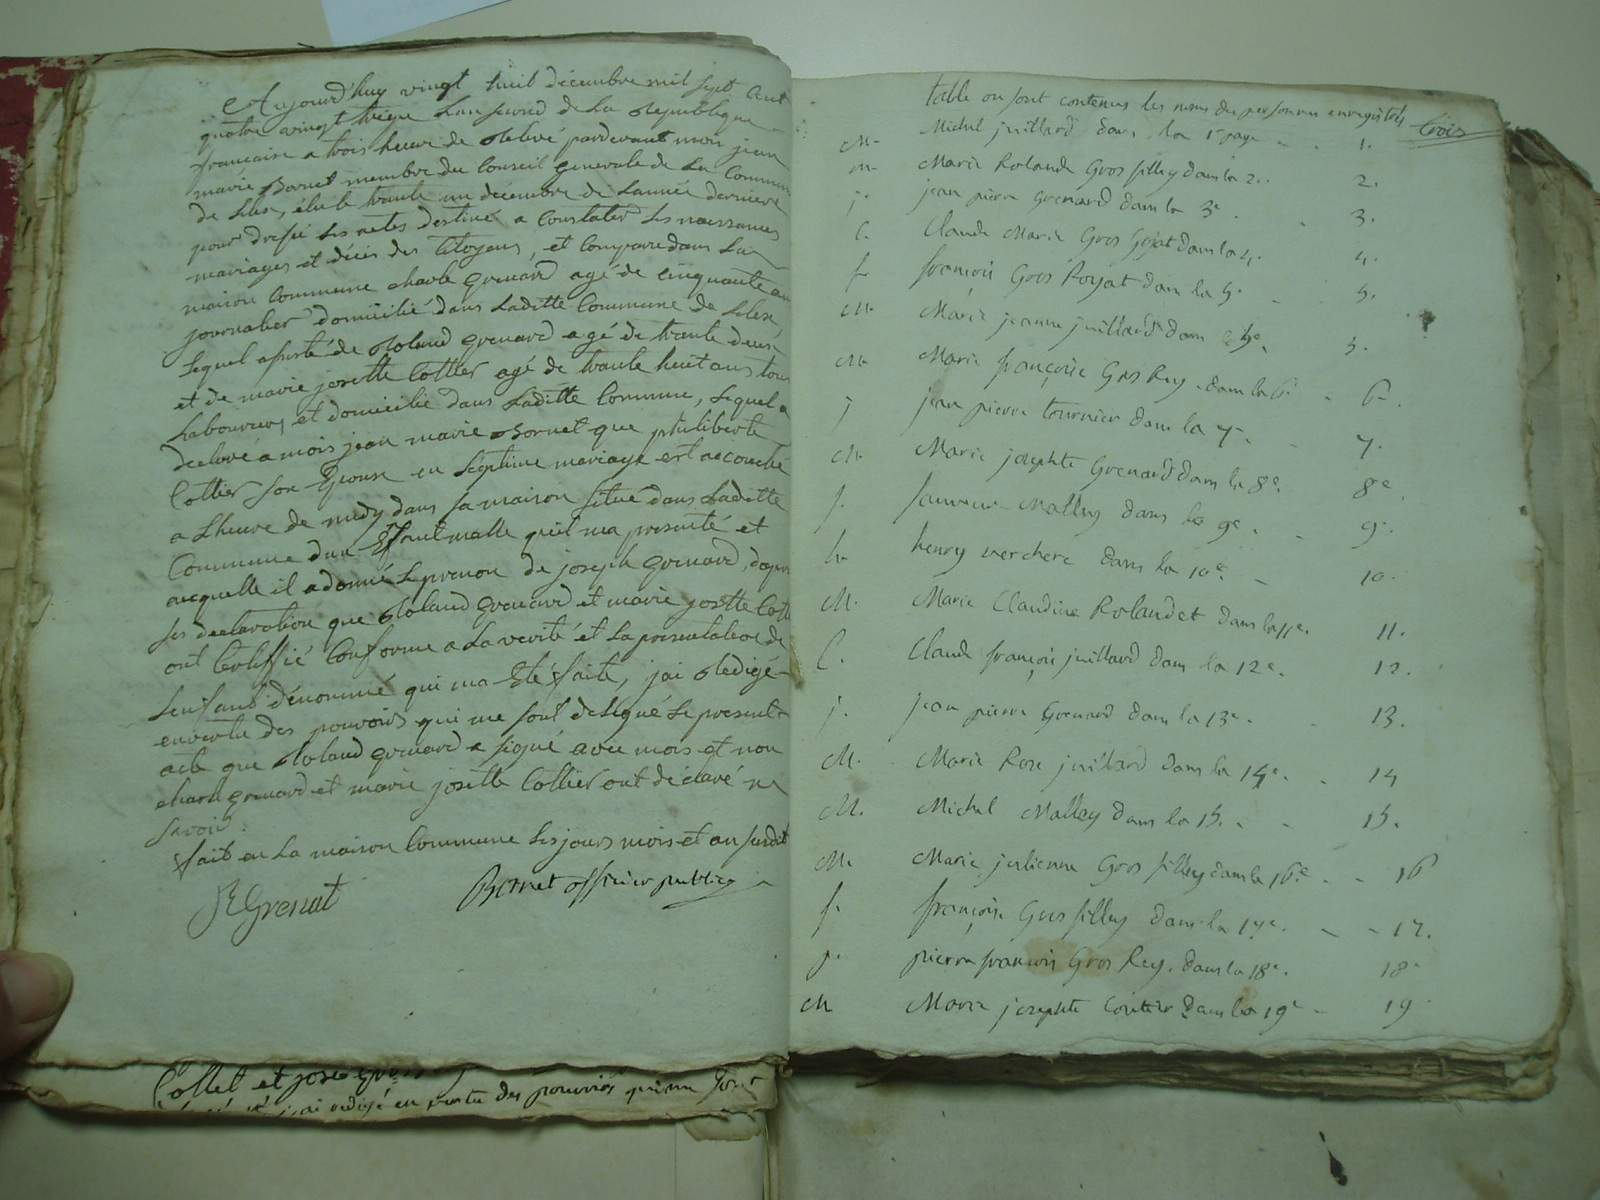 Aujourd'huy vingt huit décembre mil sept cent
quatre vingt treize Lan second de La Republique
francaise a trois heure de Relevé pardevant mois jean
marie Bornet membre du Conseil generale de La Commune
de Lelex, élu le trante un décembre de Lannée derniere
pour dressé les actes destiné a Constater Les naissances
mariages et décès des Citoyens, et Comparu dans La
maison Commune charle grenard agé de Cinquante an
journalier domicilié dans Laditte Commune de Lelex,
Lequel assisté de Roland grenard agé de trante deux
et de marie josette Cottier agé de trante huit ans tous
Laboureurs et domicilié dans Laditte Commune, Lequel a
declaré a mois jean marie Bornet que philiberte
Cottier son Epouse en Septieme mariage est accouché
a Lheure de midy dans sa maison situé dans Laditte
Commune dun Enfant malle quil ma presenté et
auquelle il a donné Le prenon de joseph grenard, dapres
ses declaration que Roland grenard et marie josette Cott
ont Certiffié Conforme a La verité et La presentation de
Lenfant dénommé qui ma Eté faite, jai Redigé
en vertu des pouvoirs qui me sont delegué Le present
acte que Roland grenard a signé avec mois et non
charle grenard et marie josette Cottier ont déclaré ne
savoir.
fait en La maison Commune Les jours mois et an susdit
R Grenat Bornet officier public
Collet et jose
jai redigé en vertu des pouvoirs qui me sont
table ou sont contenus les noms des personnes enregistrés
trois
M. Michel juillard dans la 1re page 1.
m. Marie Rolande Gros filley dans la 2. 2.
j. jean pierre Grenard dans la 3e. 3.
C. Claude Marie Gros Gojat dans la 4. 4.
f. françois Gros Royat dans la 5e 5.
M. Marie jeanne juillard dans la 5e. 5.
M. Marie françoise Gros Rey. dans la 6e 6.
j jean pierre tournier dans la 7. 7.
M. Marie josephte Grenard dans la 8e. 8e.
f. Malley dans la 9e. 9.
h. henry verchere dans la 10e. 10.
M. Marie Claudine Rolandet dans la 11e. 11.
C. Claude françois juillard dans la 12e. 12.
j. jean pierre Grenard dans la 13e. 13.
M. Marie Rose juillard dans la 14e. 14
M. Michel Malley dans la 15. 15.
M. Marie julienne Gros filley dans la 16e. 16
f. françoise Gros filley dans la 17e. 17.
p. pierre françois Gros Rey. dans la 18e. 18
M Marie josephte Cottier dans la 19e 19